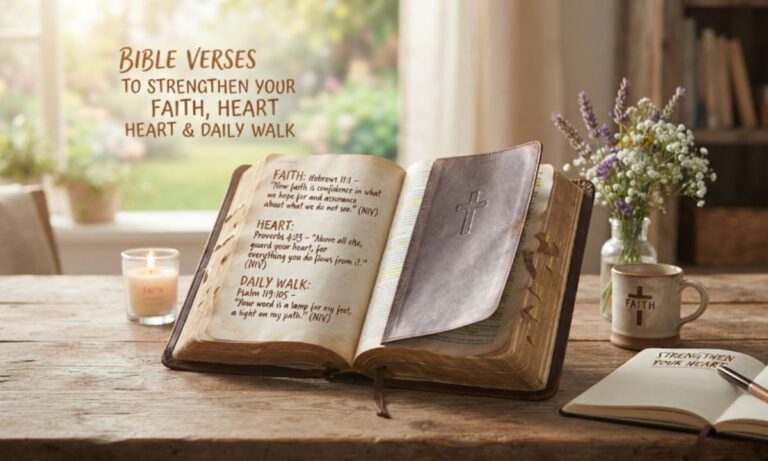 BIBLE VERSES
TO STRENGTHEN YOUR
FAITH, HEART
HEART & DAILY WALK
FAITH: Hebrews 11:1 –
"Now faith is confidence in what
we hope for and assurance
about what we do not see." (NIV)
HEART:
Proverbs 4:23 – "Above all else,
guard your heart, for
everything you do flows from it."
(NIV)
DAILY WALK:
Psalm 119:105 –
"Your word is a lamp for my feet,
a light on my path." (NIV)
FAITH
FAITH
STRENGTHEN
YOUR HEART